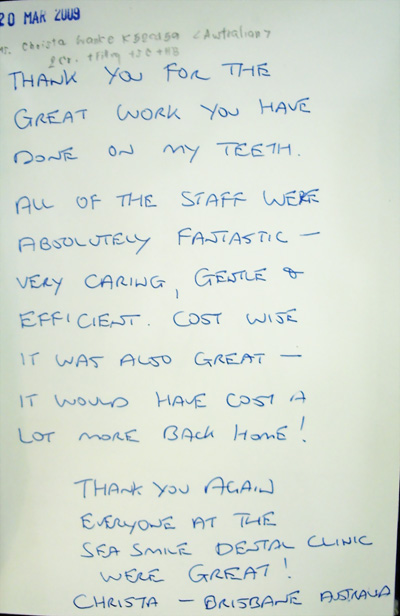 20 MAR 2009
Christa <Australian>
THANK YOU FOR THE
GREAT WORK YOU HAVE
DONE ON MY TEETH.
ALL OF THE STAFF WERE
ABSOLUTELY FANTASTIC —
VERY CARING, GENTLE &
EFFICIENT. COST WISE
IT WAS ALSO GREAT —
IT WOULD HAVE COST A
LOT MORE BACK HOME!
THANK YOU AGAIN
EVERYONE AT THE
SEA SMILE DENTAL CLINIC
WERE GREAT!
CHRISTA — BRISBANE AUSTRALIA